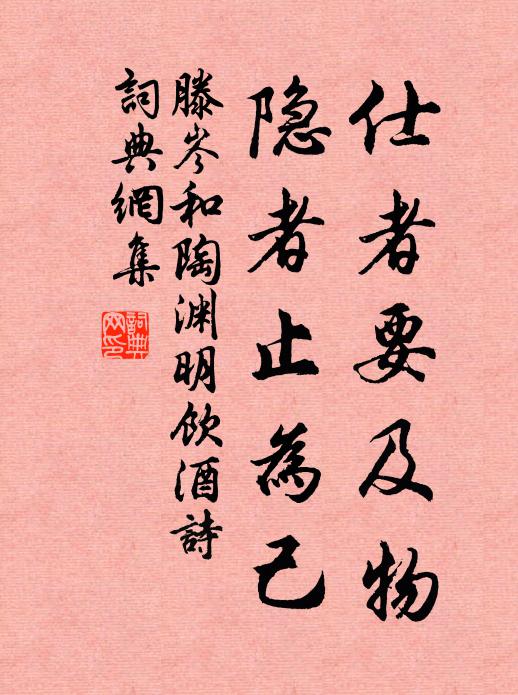 仕者要及物
隐者止為己
滕岑和陶渊明飲酒詩
詞典網集
詞典网印